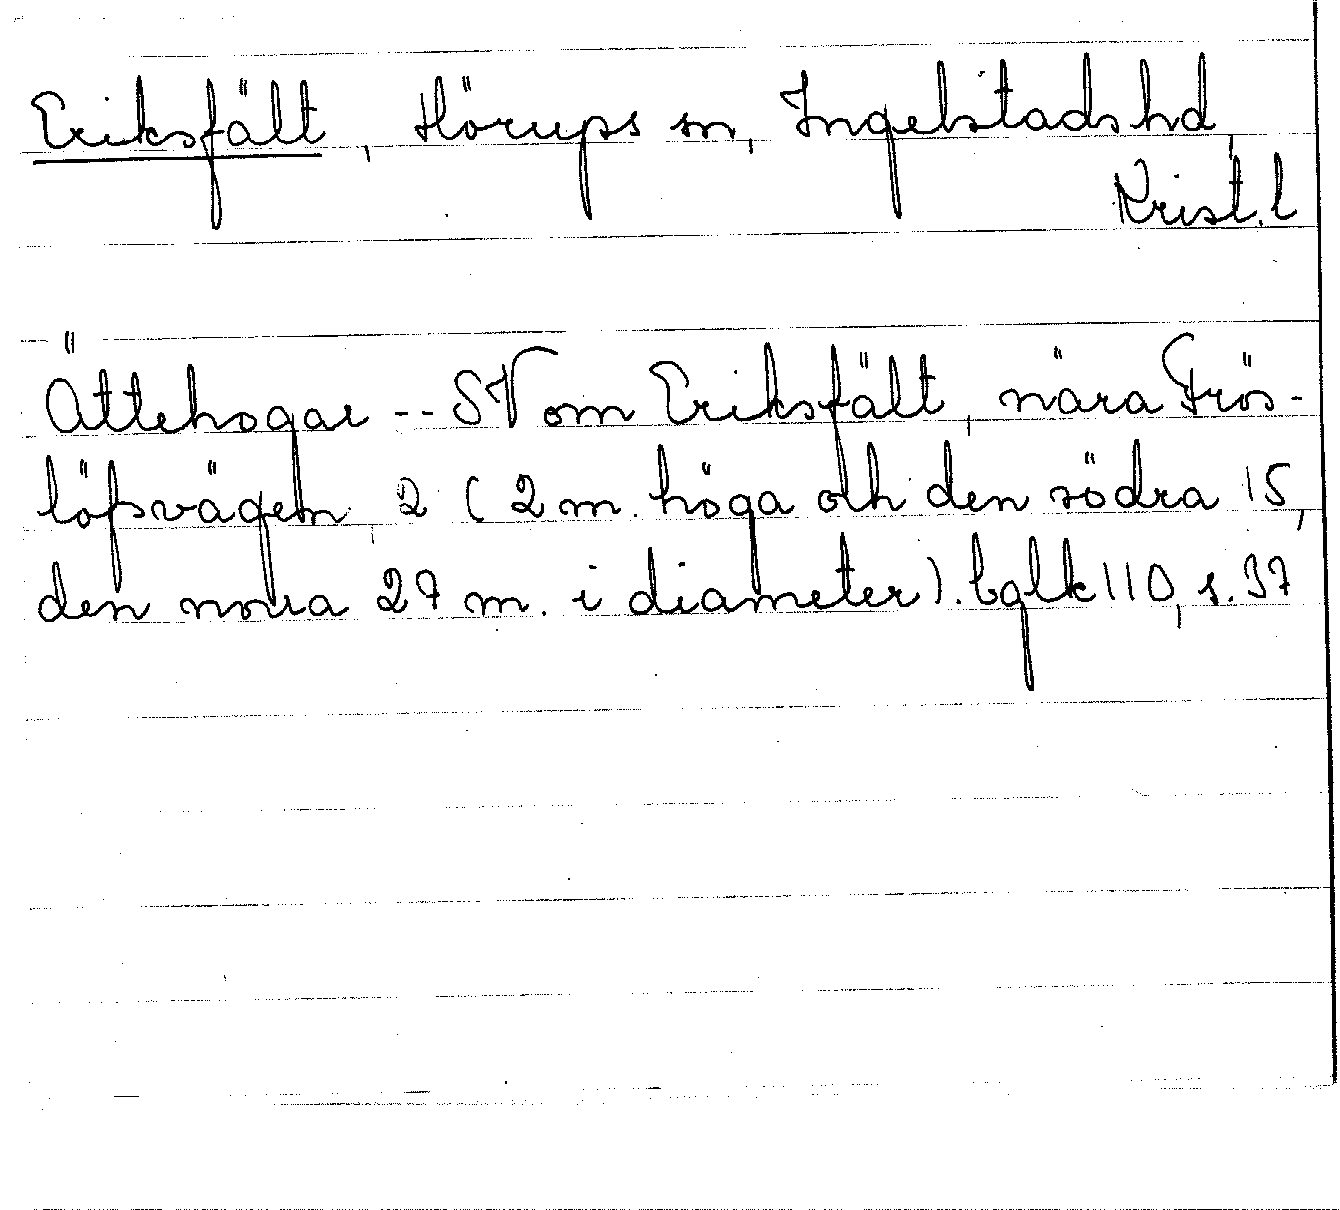 Eriksfält, Hörups sn, Ingelstads hd,
Krist. l
Ättehögar -- SV om Eriksfält, nära Frös-
löfsvägen, 2 (2 m. höga och den södra 15,
den norra 27 m. i diameter). bglk 110, s. 37